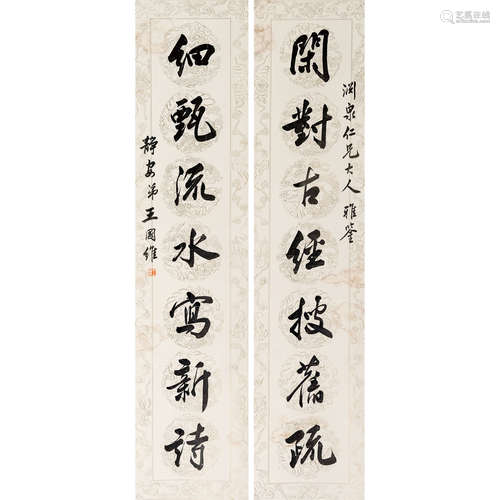 閑對古經搜舊疏
淵泉仁兄大人 雅鑒
細甄流水寫新詩
靜安弟王國維